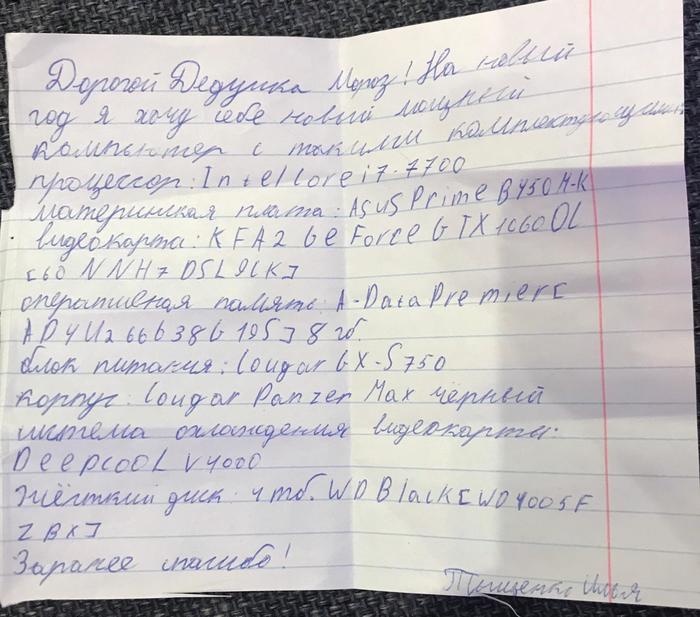 Дорогой Дедушка Мороз! На новый
год я хочу себе новый мощный
компьютер с такими комплектующими
процессор: Intel Core i7-7700
материнская плата: ASUS Prime B450M-K
видеокарта: KFA2 GeForce GTX1060OL
[60NNH7DSL9CK]
оперативная память: A-Data Premier[
AD4U266638G19S] 8 гб.
блок питания: Cougar GX-S750
корпус: Cougar Panzer Max чёрный
система охлаждения видеокарты:
DeepcooL V4000
Жёсткий диск: 4тб. WD Black [WD4005F
ZBX]
Заранее спасибо!
Тищенко Илья